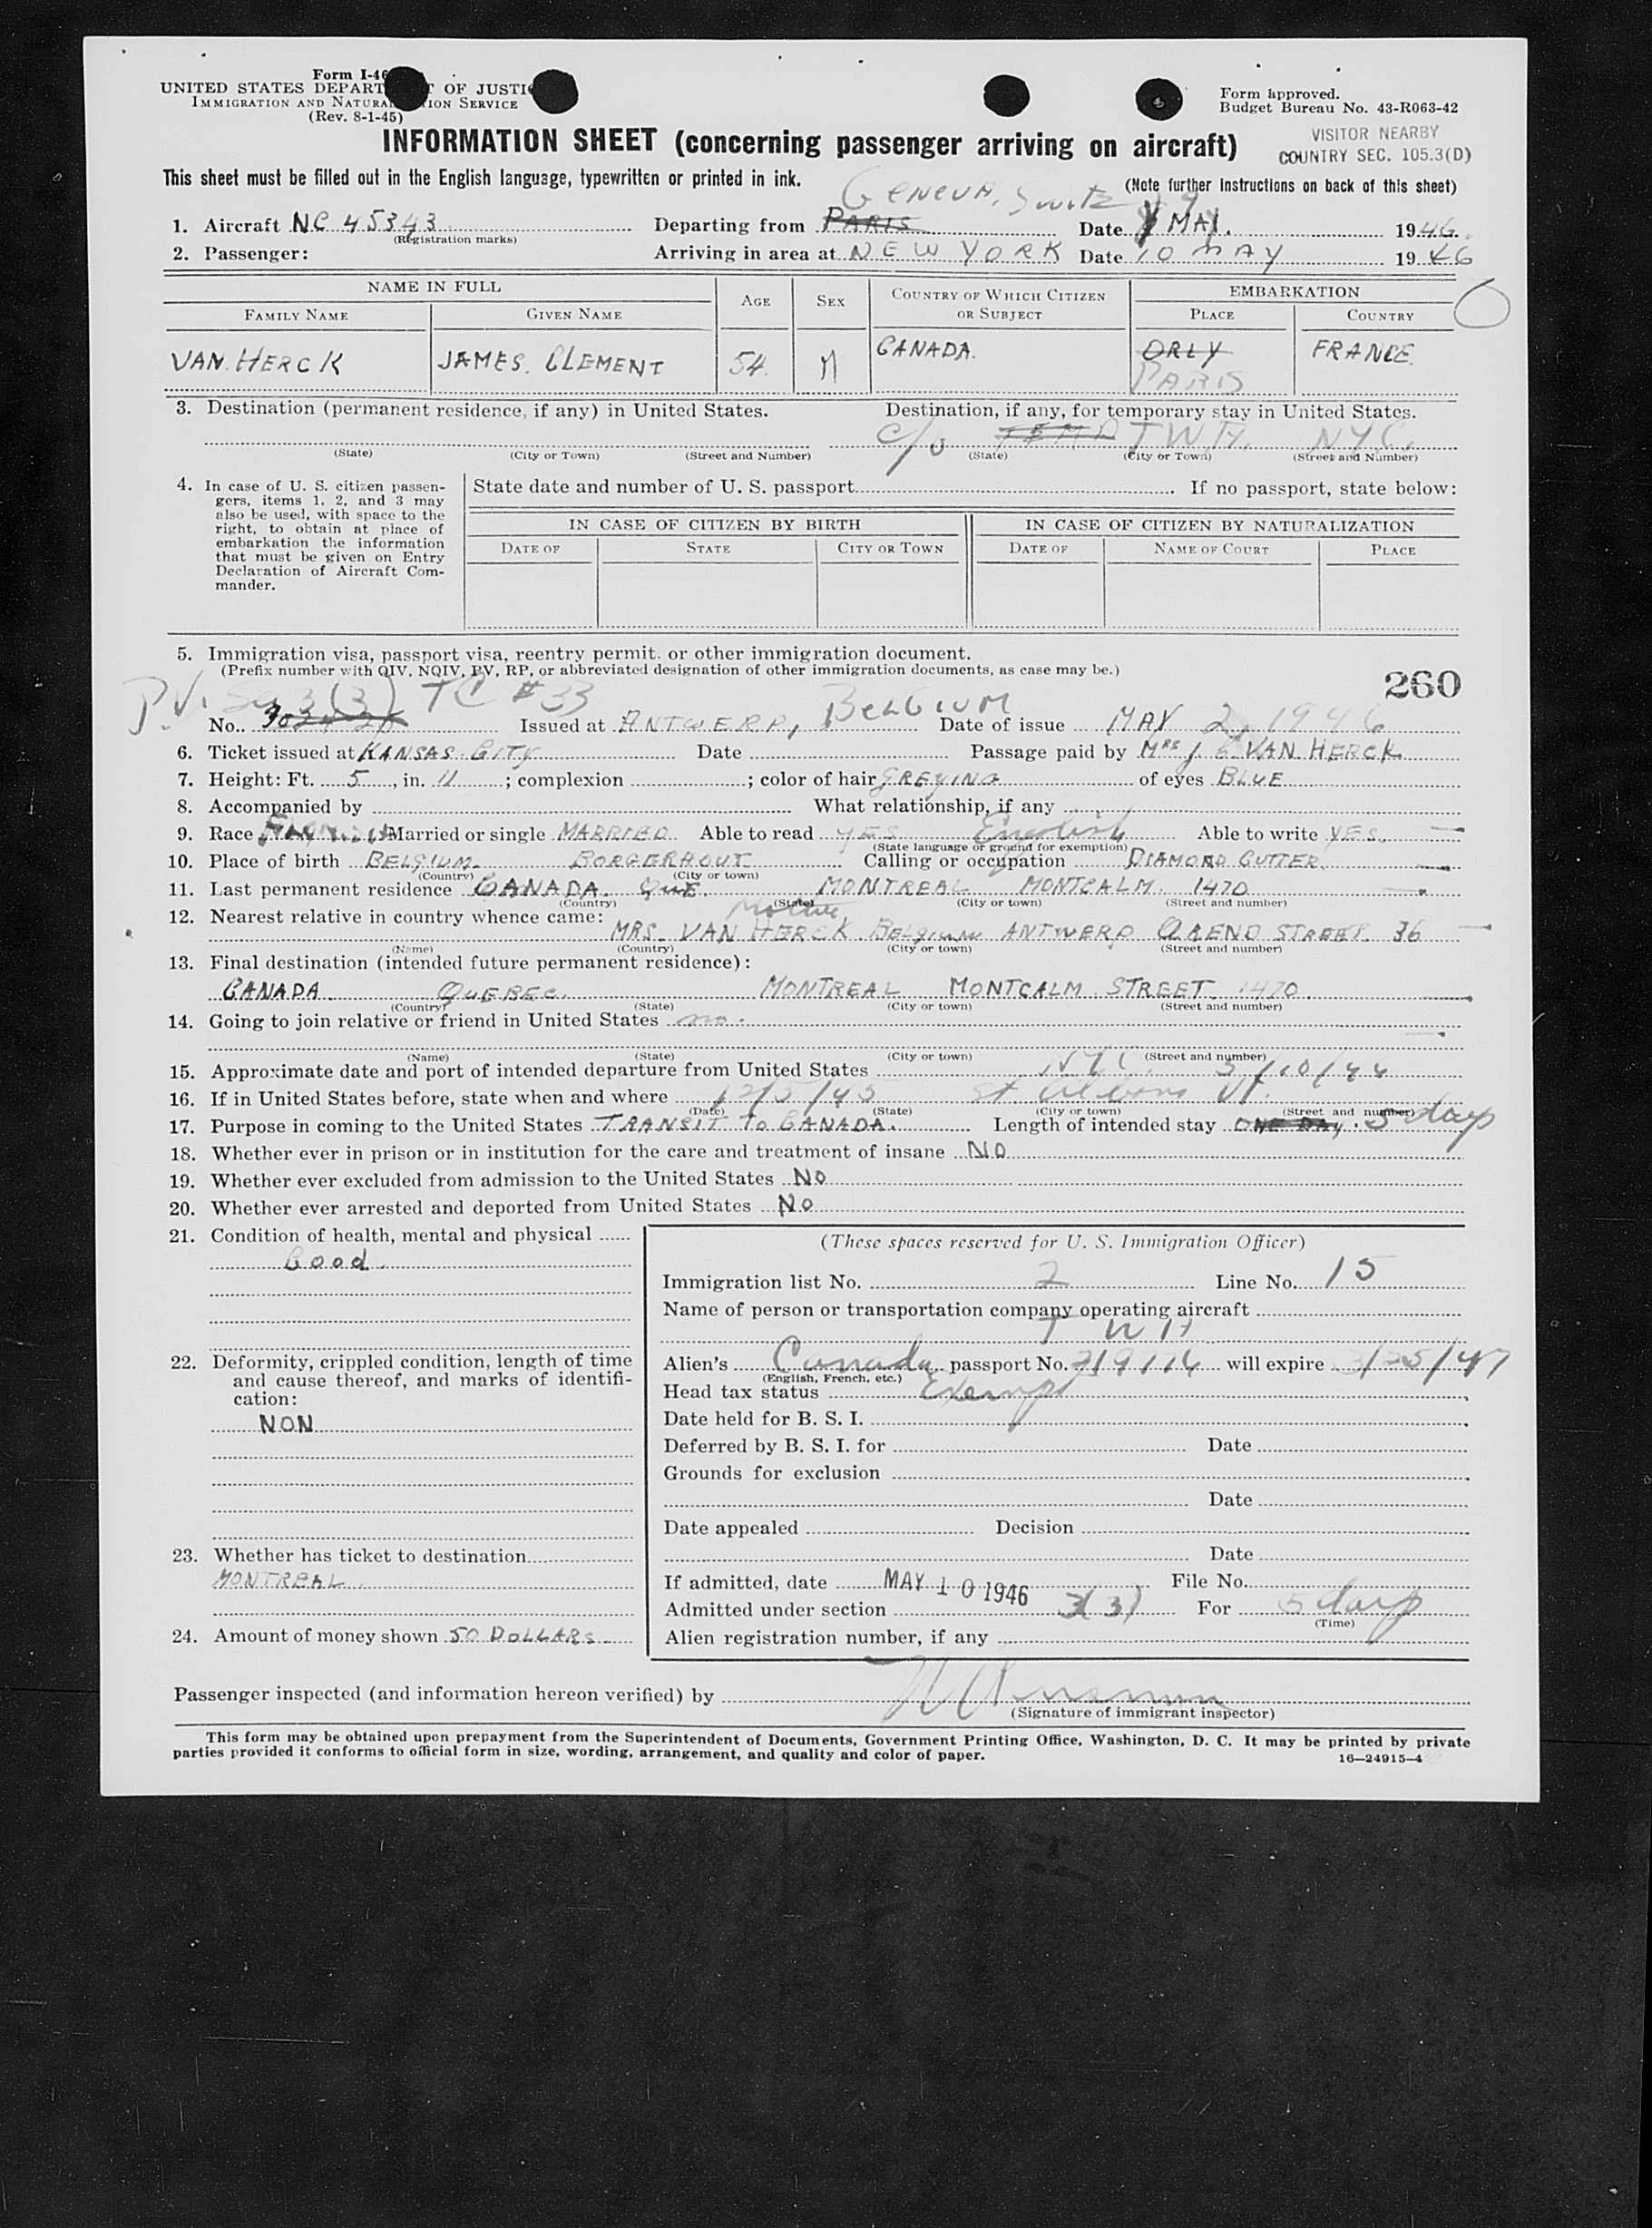 Form I-46
UNITED STATES DEPART T OF JUSTI
IMMIGRATION AND NATURA ION SERVICE
(Rev. 8-1-45)
Form approved.
Budget Bureau No. 43-R063-42
VISITOR NEARBY
COUNTRY SEC. 105.3(D)
INFORMATION SHEET (concerning passenger arriving on aircraft)
This sheet must be filled out in the English language, typewritten or printed in ink.
(Note further instructions on back of this sheet)
GENEVA, Switz
1. Aircraft NC 45343 Departing from PARIS Date MAY. 1946
(Registration marks)
2. Passenger: Arriving in area at NEW YORK Date 10 MAY 1946
NAME IN FULL AGE SEX COUNTRY OF WHICH CITIZEN OR SUBJECT EMBARKATION
FAMILY NAME GIVEN NAME PLACE COUNTRY
VAN HERCK JAMES. CLEMENT 54. M CANADA. ORLY FRANCE.
PARIS
3. Destination (permanent residence, if any) in United States. Destination, if any, for temporary stay in United States.
c/o TWA. NYC.
(State) (City or Town) (Street and Number) (State) (City or Town) (Street and Number)
4. In case of U. S. citizen passengers, items 1, 2, and 3 may also be used, with space to the right, to obtain at place of embarkation the information that must be given on Entry Declaration of Aircraft Commander.
State date and number of U. S. passport If no passport, state below:
IN CASE OF CITIZEN BY BIRTH IN CASE OF CITIZEN BY NATURALIZATION
DATE OF STATE CITY OR TOWN DATE OF NAME OF COURT PLACE
5. Immigration visa, passport visa, reentry permit, or other immigration document.
(Prefix number with QIV, NQIV, PV, RP, or abbreviated designation of other immigration documents, as case may be.)
260
P.V. Sec 3(3) TC # 33
No. Issued at ANTWERP, BELGIUM Date of issue MAY 2, 1946
6. Ticket issued at KANSAS CITY Date Passage paid by MRS J C VAN HERCK
7. Height: Ft. 5, in. 11; complexion ; color of hair GREYING of eyes BLUE
8. Accompanied by What relationship, if any
9. Race Married or single MARRIED Able to read YES English Able to write YES.
(State language or ground for exemption)
10. Place of birth BELGIUM. BORGERHOUT Calling or occupation DIAMOND CUTTER.
(Country) (City or town)
11. Last permanent residence CANADA. QUE. MONTREAL MONTCALM. 1470
(Country) (State) (City or town) (Street and number)
12. Nearest relative in country whence came: Mother
MRS. VAN HERCK. Belgium ANTWERP STREET. 36
(Name) (Country) (City or town) (Street and number)
13. Final destination (intended future permanent residence):
CANADA. QUEBEC. MONTREAL MONTCALM STREET. 1470.
(Country) (State) (City or town) (Street and number)
14. Going to join relative or friend in United States no.
(Name) (State) (City or town) (Street and number)
15. Approximate date and port of intended departure from United States NYC. 5/10/46
16. If in United States before, state when and where 12/5/45 St Albans Vt.
(Date) (State) (City or town) (Street and number)
17. Purpose in coming to the United States TRANSIT TO CANADA. Length of intended stay ONE DAY. 5 days
18. Whether ever in prison or in institution for the care and treatment of insane NO
19. Whether ever excluded from admission to the United States NO
20. Whether ever arrested and deported from United States NO
21. Condition of health, mental and physical
Good.
22. Deformity, crippled condition, length of time and cause thereof, and marks of identification:
NON
23. Whether has ticket to destination
MONTREAL.
24. Amount of money shown 50 DOLLARS.
(These spaces reserved for U. S. Immigration Officer)
Immigration list No. 2 Line No. 15
Name of person or transportation company operating aircraft
T W A
Alien's Canada passport No. will expire 3/25/47
(English, French, etc.)
Head tax status Exempt
Date held for B. S. I.
Deferred by B. S. I. for Date
Grounds for exclusion
Date
Date appealed Decision
Date
If admitted, date MAY 10 1946 File No.
Admitted under section 3(3) For 5 days
(Time)
Alien registration number, if any
Passenger inspected (and information hereon verified) by
(Signature of immigrant inspector)
This form may be obtained upon prepayment from the Superintendent of Documents, Government Printing Office, Washington, D. C. It may be printed by private
parties provided it conforms to official form in size, wording, arrangement, and quality and color of paper.
16—24915-4